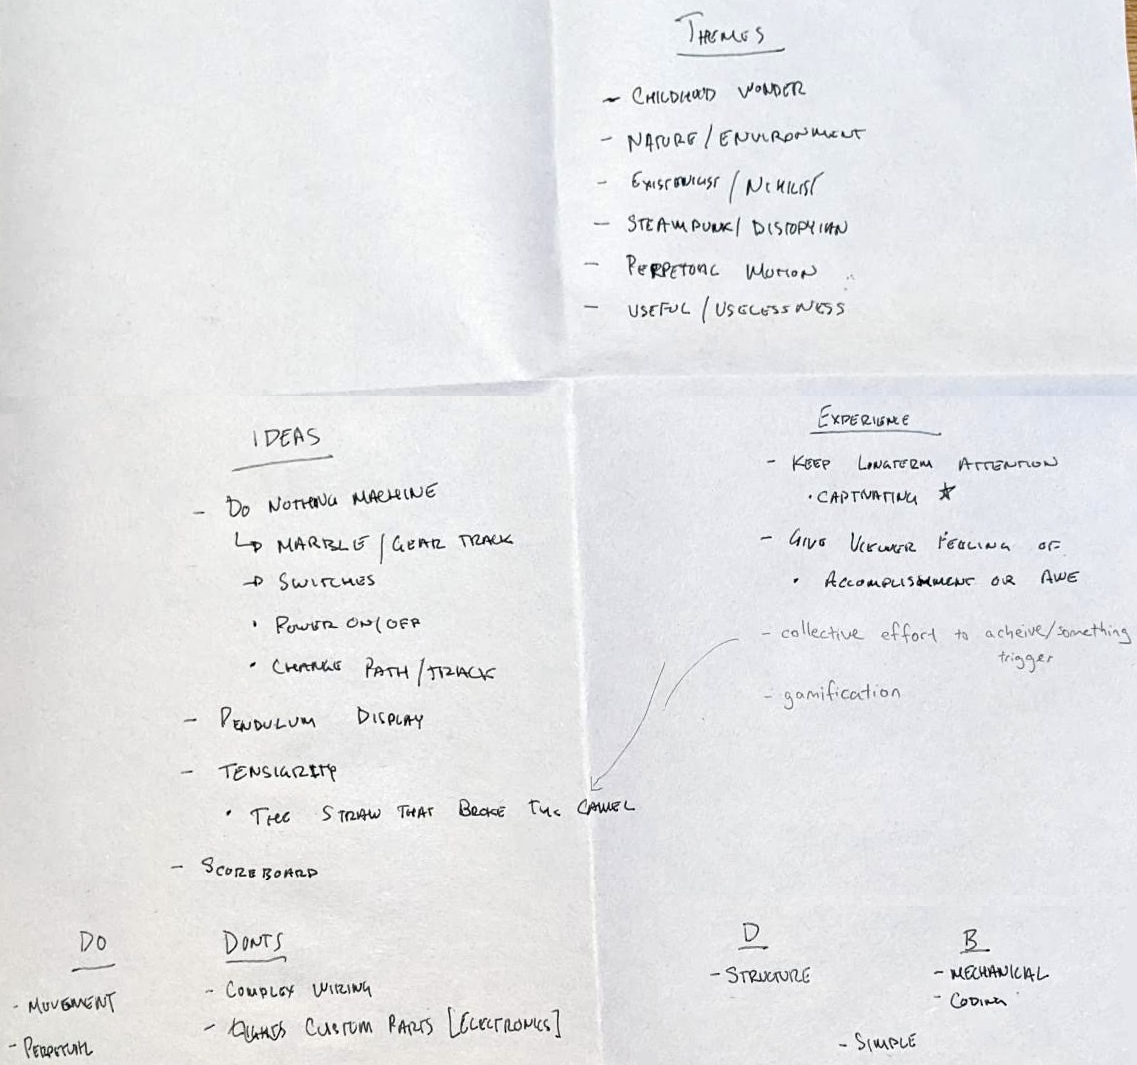 THEMES
- CHILDHOOD WONDER
- NATURE / ENVIRONMENT
- EXISTENIALIST / NIHILIST
- STEAMPUNK / DISTOPYIAN
- PERPETUAL MOTION
- USEFUL / USELESSNESS
IDEAS
- DO NOTHING MACHINE
↳ MARBLE / GEAR TRACK
→ SWITCHES
• POWER ON/OFF
• CHANGE PATH / TRACK
- PENDULUM DISPLAY
- TENSIGRITY
• THE STRAW THAT BROKE THE CAMEL
- SCOREBOARD
EXPERIENCE
- KEEP LONGTERM ATTENTION
• CAPTIVATING ★
- GIVE VIEWER FEELING OF
• ACCOMPLISHMENT OR AWE
- collective effort to acheive/something
trigger
- gamification
DO
- MOVEMENT
- PERPETUAL
DONTS
- COMPLEX WIRING
- CUSTOM PARTS [ELECTRONICS]
D
- STRUCTURE
B
- MECHANICAL
- CODING
- SIMPLE